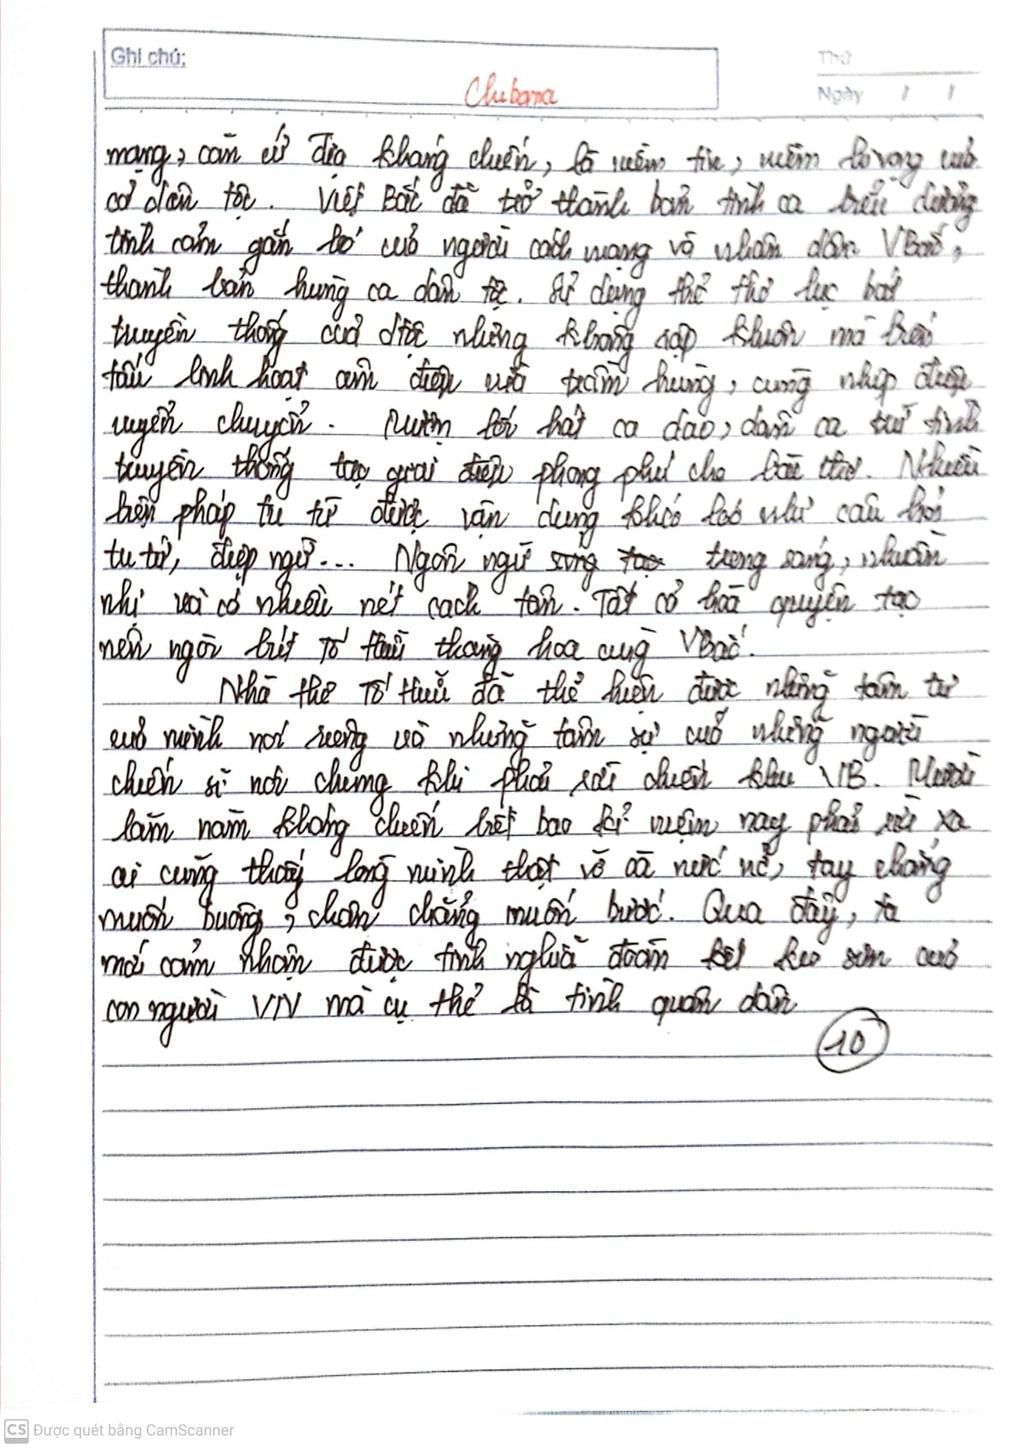 Ghi chú:
Thứ
Ngày / /
Clubana
mạng, căn cứ địa kháng chiến, là niềm tin, niềm hi vọng của
cả dân tộc. Việt Bắc đã trở thành bản tình ca biểu dương
tình cảm gắn bó của người cách mạng và nhân dân VBắc,
thành bản hùng ca dân tộc. Sử dụng thể thơ lục bát
truyền thống của dtộc nhưng không rập khuôn mà biến
tấu linh hoạt âm điệu vừa trầm hùng, cùng nhịp điệu
uyển chuyển. Mượn lối hát ca dao, dân ca trữ tình
truyền thống tạo giai điệu phong phú cho bài thơ. Nhiều
biện pháp tu từ được vận dụng khéo léo như câu hỏi
tu từ, điệp ngữ... Ngôn ngữ trong sáng, nhuần
nhị và có nhiều nét cách tân. Tất cả hoà quyện tạo
nên ngòi bút Tố Hữu thăng hoa cùng VBắc.
Nhà thơ Tố Hữu đã thể hiện được những tâm tư
của mình nơi riêng và những tâm sự của những người
chiến sĩ nói chung khi phải rời chiến khu VB. Mười
lăm năm kháng chiến biết bao kỉ niệm nay phải rời xa
ai cũng thấy lòng mình thật vỡ oà nức nở, tay chẳng
muốn buông, chân chẳng muốn bước. Qua đây, ta
mới cảm nhận được tình nghĩa đoàn kết keo sơn của
con người VN mà cụ thể là tình quân dân
10
CS Được quét bằng CamScanner